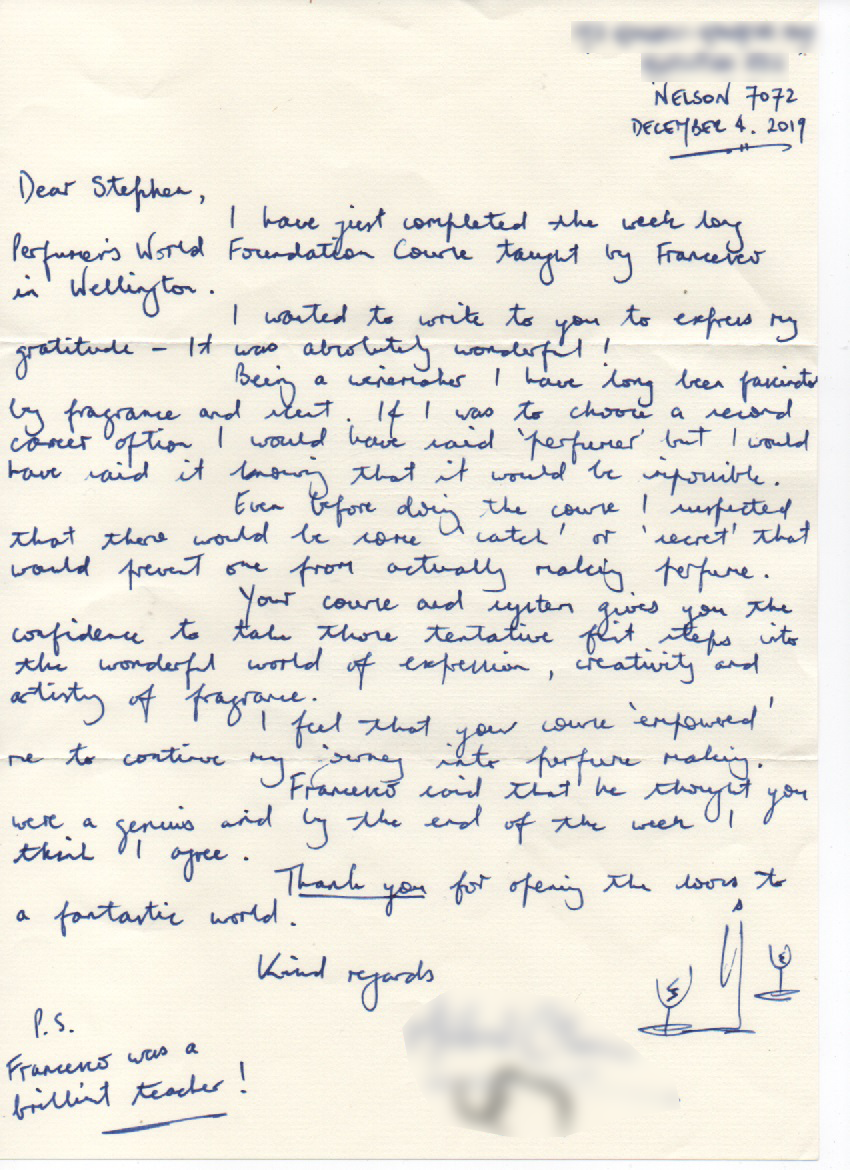 NELSON 7072
DECEMBER 4. 2019
Dear Stephen,
I have just completed the week long
Perfumer's World Foundation Course taught by Francesco
in Wellington.
I wanted to write to you to express my
gratitude - It was absolutely wonderful!
Being a winemaker I have long been fascinated
by fragrance and scent. If I was to choose a second
career option I would have said 'perfumer' but I would
have said it knowing that it would be impossible.
Even before doing the course I suspected
that there would be some 'catch' or 'secret' that
would prevent one from actually making perfume.
Your course and system gives you the
confidence to take those tentative first steps into
the wonderful world of expression, creativity and
artistry of fragrance.
I feel that your course 'empowered'
me to continue my journey into perfume making.
Francesco said that he thought you
were a genius and by the end of the week I
think I agree.
Thank you for opening the doors to
a fantastic world.
Kind regards
P.S.
Francesco was a
brilliant teacher!